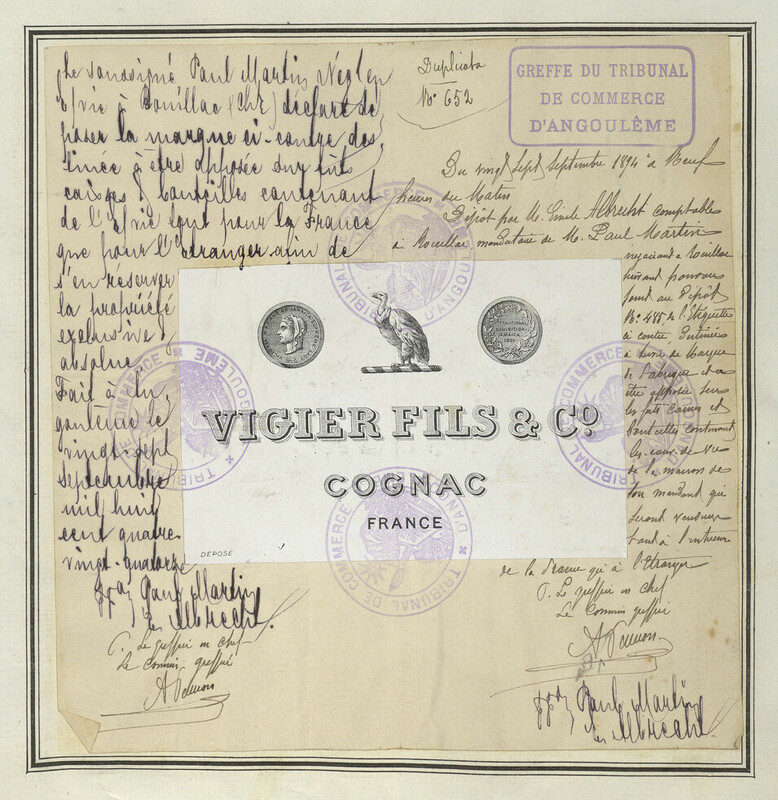 Le soussigné Paul Martin Négten
E/vie à Rouillac (Chte) déclare dé-
poser la marque ci-contre des
tinée à être apposée sur fûts
caisses & bouteilles contenant
de l'E/vie tant pour la France
que pour l'étranger afin de
s'en réserver
la propriété
exclusive
absolue
Fait à An
goulême le
vingt sept
septembre
mil huit
cent quatre
vingt-quatorze
ppon Paul Martin
Em Albrecht.
P. Le greffier en chef
Le Commis greffier
Duplicata
No 652
GREFFE DU TRIBUNAL
DE COMMERCE
D'ANGOULÊME
Du vingt sept Septembre 1894 à Neuf
heures du Matin
Dépôt par M. Emile Albrecht comptable
à Rouillac mandataire de M. Paul Martin
négociant à Rouillac
suivant pouvoir
joint au Dépôt
No 485 de l'Etiquette
ci contre Destinée
à servir de Marque
de fabrique et à
être apposée sur
les fûts Caisses et
Bouteilles contenant
les eaux-de-vie
de la maison de
son mandant qui
seront vendues
tant à l'intérieur
de la France qu'à l'Etranger
P. Le greffier en chef
Le Commis greffier
ppon Paul Martin
Em Albrecht
VIGIER FILS & Co.
COGNAC
FRANCE
DÉPOSÉ
TRIBUNAL DE COMMERCE D'ANGOULÊME
TRIBUNAL DE COMMERCE D'ANGOULÊME
TRIBUNAL DE COMMERCE D'ANGOULÊME
TRIBUNAL DE COMMERCE D'ANGOULÊME